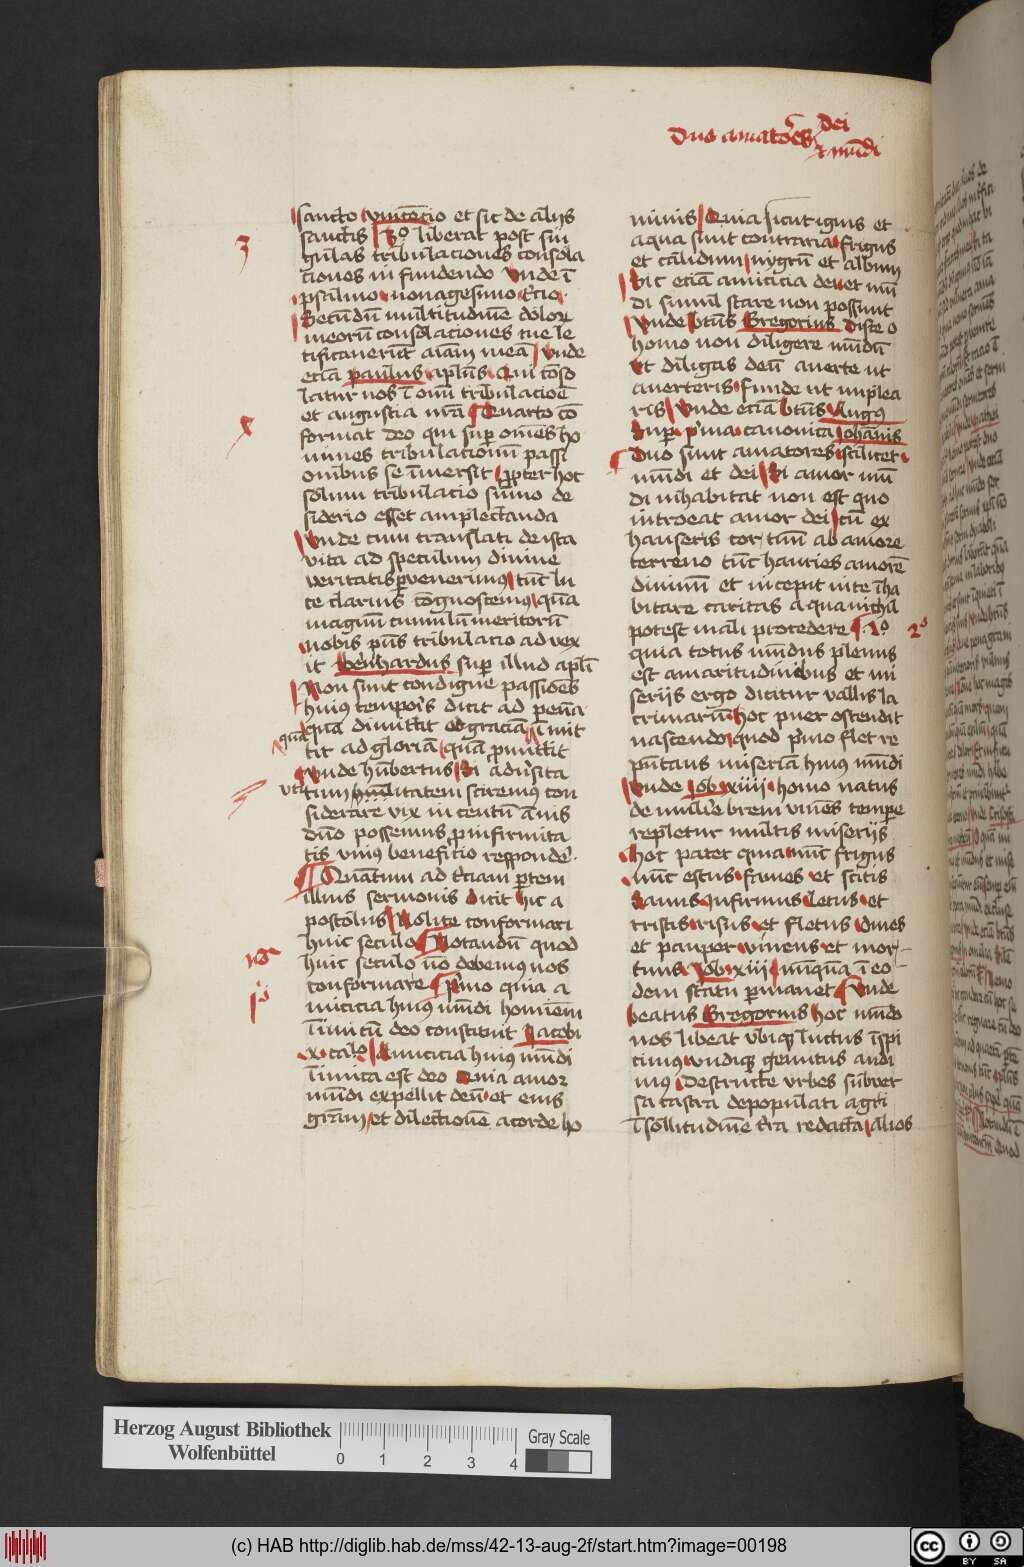 Duo amatores dei
et mu̅di
sancto vincecio et sic de alijs
sanctis 3º liberat post sin
gulas tribulaciones consola
ciones in fundendo vnde i̅
psalmo nonagesimo t̓cio
Secu̅du̅ multitudine̅ dolor
meoru̅ consolaciones tue le
tificaueru̅t aia̅m mea̅ vnde
ecia̅ paulus aplu̅s Qui co̅so
latur nos i̅ om̅i tribulacio̅e
et angustia nr̅a Quarto co̅
format deo qui sup̱ om̅es ho
mines tribulacionu̅ passi
onibus se i̅mersit p̱pter hoc
solum tribulacio su̅mo de
siderio esset amplectanda
vnde cum translati de ista
vita ad speculum diuine
veritatis p̱uenerimꝰ tu̅c lu
ce clarius co̅gnoscemꝰ qua̅
magnu̅ cumulu̅ meritoru̅
nobis pn̅s tribulacio ad vex
it Bernhardus sup̱ illud apl̅i
Non sunt condigne passio̅es
huiꝰ tempor̓s dicit ad pena̅
qua̅ dimittit ad gracia̅ i̅mit
qua
tit ad gloria̅ qua̅ p̓mittit
vnde hu̅bertus Si adu̓sita
vti
tum humilitatem sciremꝰ con
siderare vix in centu̅ a̅nis
du̅o possemus p̱ infirmita
tis vniꝰ beneficio responde̓
Quantum ad t̓ciam p̱tem
illius sermonis dicit hic a
postolus Nolite conformari
huic seculo Notandu̅ quod
huic seculo no̅ debemꝰ nos
conformare p̓mo quia a
micicia huiꝰ mu̅di homine̅m
i̅imicu̅ deo constituit Jacobi
Amicicia huiꝰ mu̅di
i̅imica est deo Quia amor
mu̅di expellit deu̅ et eius
gr̅am et dilectione̅ a corde ho
3
nō
p̓º
minis Quia sicut ignis et
aqua sunt contraria frigus
et calidum nygru̅ et album
Sic ecia̅ amicicia dei et mu̅
di simul stare non possunt
vnde bt̅us Gregorius Disce o
homo non diligere mu̅du̅
vt diligas deu̅ auerte ut
auerteris funde ut implea
ris vnde ecia̅ bt̅us Augꝰ
Sup̱ p̓ma canonica Joha̅nis
Duo sunt amatores scilicet
mu̅di et dei Si amor mu̅
di inhabitat non est quo
introeat amor dei cu̅ ex
hauseris cor tuu̅ ab amore
terreno tu̅c hauries amore̅
diuinu̅ et incepit in te i̅ha
bitare caritas a qua nichil
potest mali procedere 2º
2º
quia totus mu̅dus plenus
est amaritudinibus et mi
serijs ergo dicitur vallis la
crimaru̅ hoc puer ostendit
nascendo quod p̓mo flet re
pu̅tans miseria̅ huiꝰ mu̅di
vnde Job xiiii homo natus
de mulie̓ breui viue̅s tempe̓
repletur multis miserijs
hoc patet quia nu̅c frigus
nu̅c estus fames et scitis
Sanus Infirmus letus et
tristis risus et fletus Diues
et pauper viuens et mor
tuus Job xiii nu̅qua̅ i̅ eo
dem statu p̱manet vnde
beatus Gregorius hoc mu̅do
nos libeat vbiqꝫ luctus i̅spi
cimus vndiqꝫ gemitus audi
mꝰ Destructe vrbes subuer
sa castra depopulati agri
i̅ sollitudine̅ t̓ra redacta alios
Herzog August Bibliothek
Wolfenbüttel
0 1 2 3 4
Gray Scale
(c) HAB http://diglib.hab.de/mss/42-13-aug-2f/start.htm?image=00198
cc BY SA